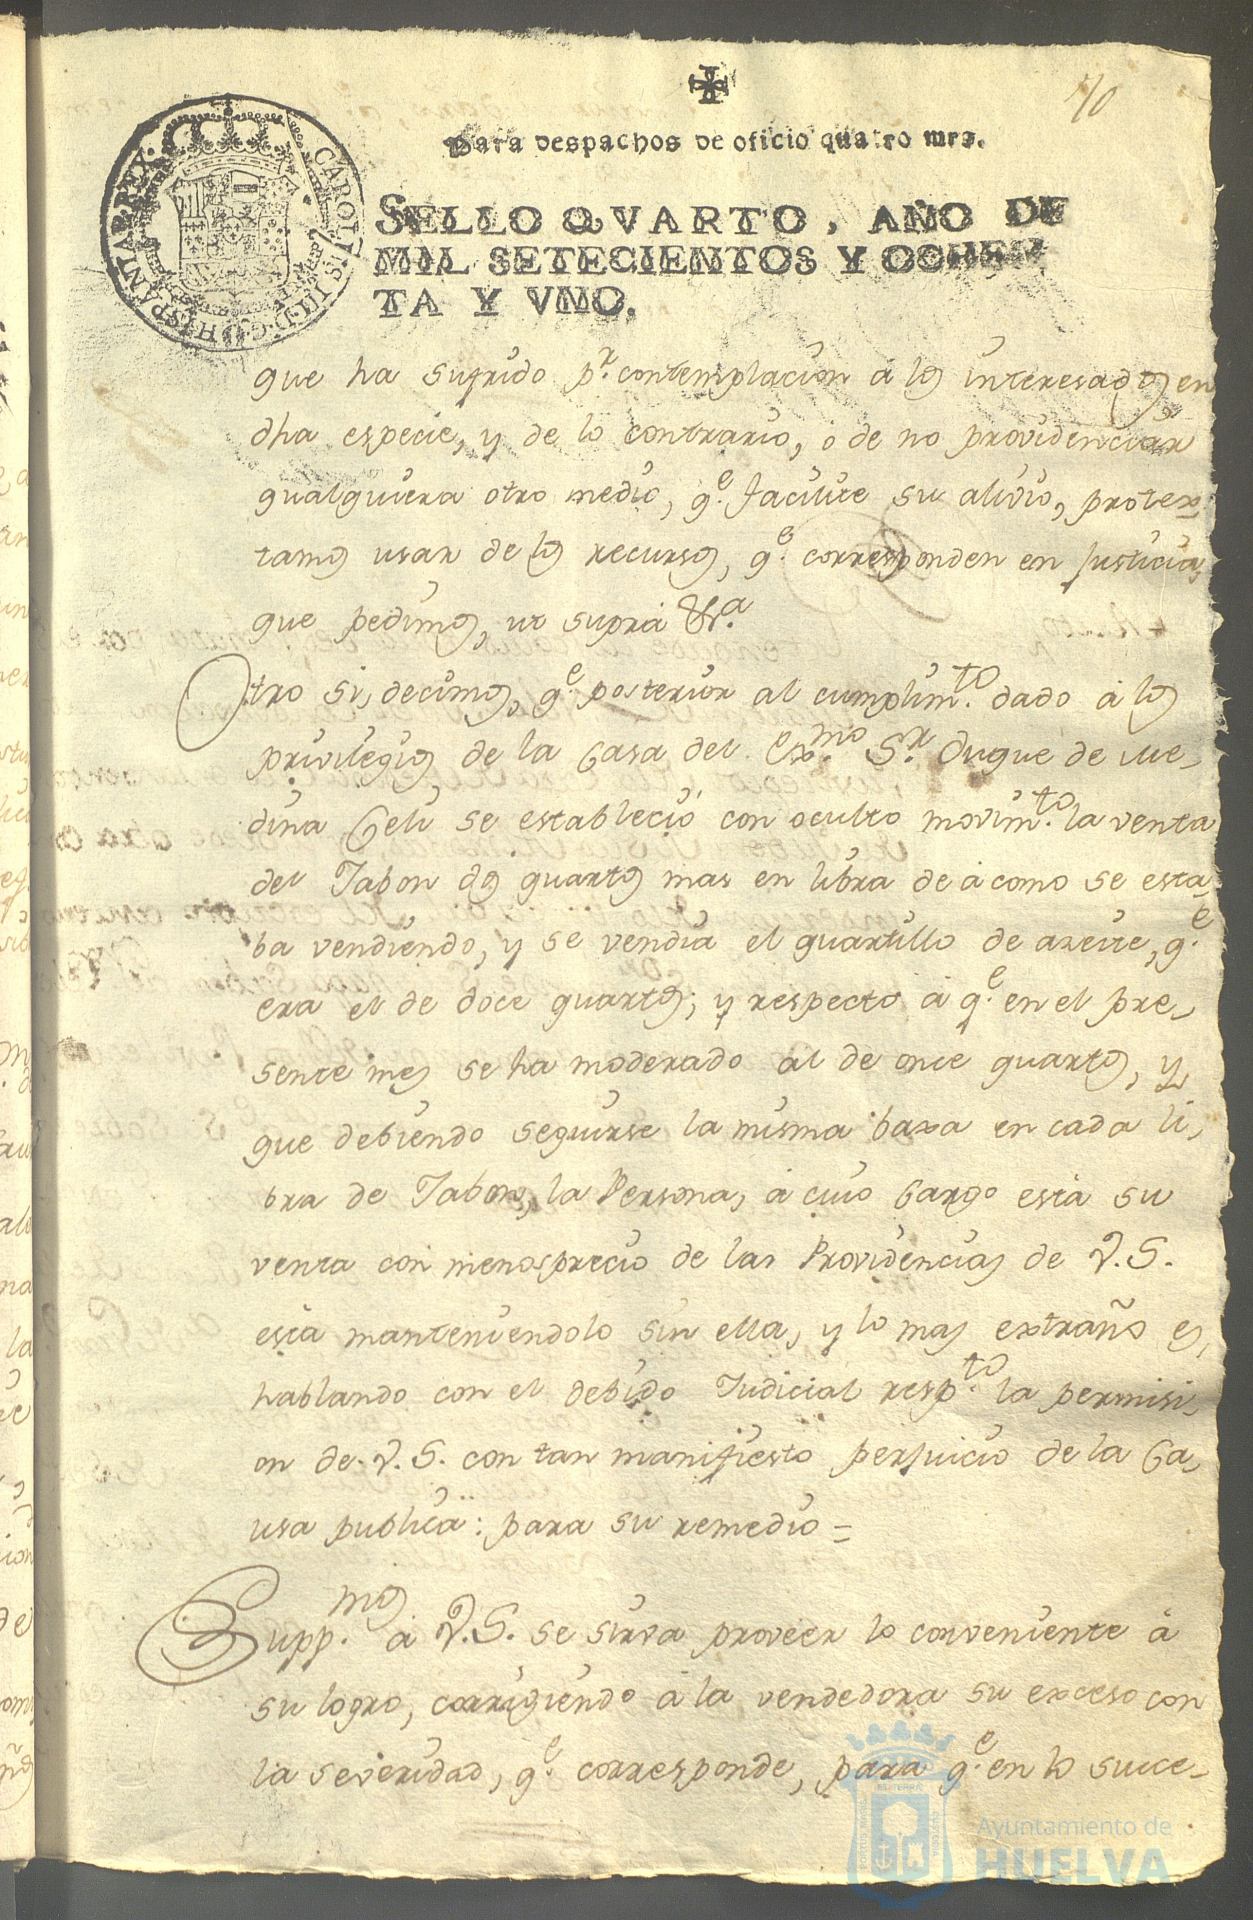 70
Para despachos de oficio quatro mrs.
CAROLVS III D. G. HISPANIAR. REX.
SELLO QVARTO, AÑO DE
MIL SETECIENTOS Y OCHEN
TA Y VNO.
que ha sufrido pr. contemplacion á los interesados, en
dha especie, y de lo contrario, ó de no providenciar
qualquiera otro medio, qe. facilite su alivio, protex-
tamos usar de los recursos, qe. corresponden en Justicia,
que pedimos, ut supra &ra.
Otro si, decimos, qe. posterior al cumplimto. dado á los
privilegios de la Casa del Exmo. Sr. Duque de Me-
dina Celi se estableció con oculto movimto. la venta
del Jabon dos quartos mas en libra de á como se esta-
ba vendiendo, y se vendia el quartillo de azeite, qe.
era el de doce quartos; y respecto á qe. en el pre-
sente mes se ha moderado al de once quartos, y
que debiendo seguirse la misma baxa en cada li-
bra de Jabon, la Persona, á cuio Cargo está su
venta con menosprecio de las Providencias de V.S.
está manteniendolo sin ella, y lo mas extraño es,
hablando con el debido Judicial respto. la permisi-
on de V.S. con tan manifiesto perjuicio de la Ca-
usa publica: para su remedio =
Suppmos. á V.S. se sirva proveer lo conveniente á
su logro, corrigiendo á la vendedora su exceso con
la severidad, qe. corresponde, para qe. en lo suce-
Ayuntamiento de
HUELVA